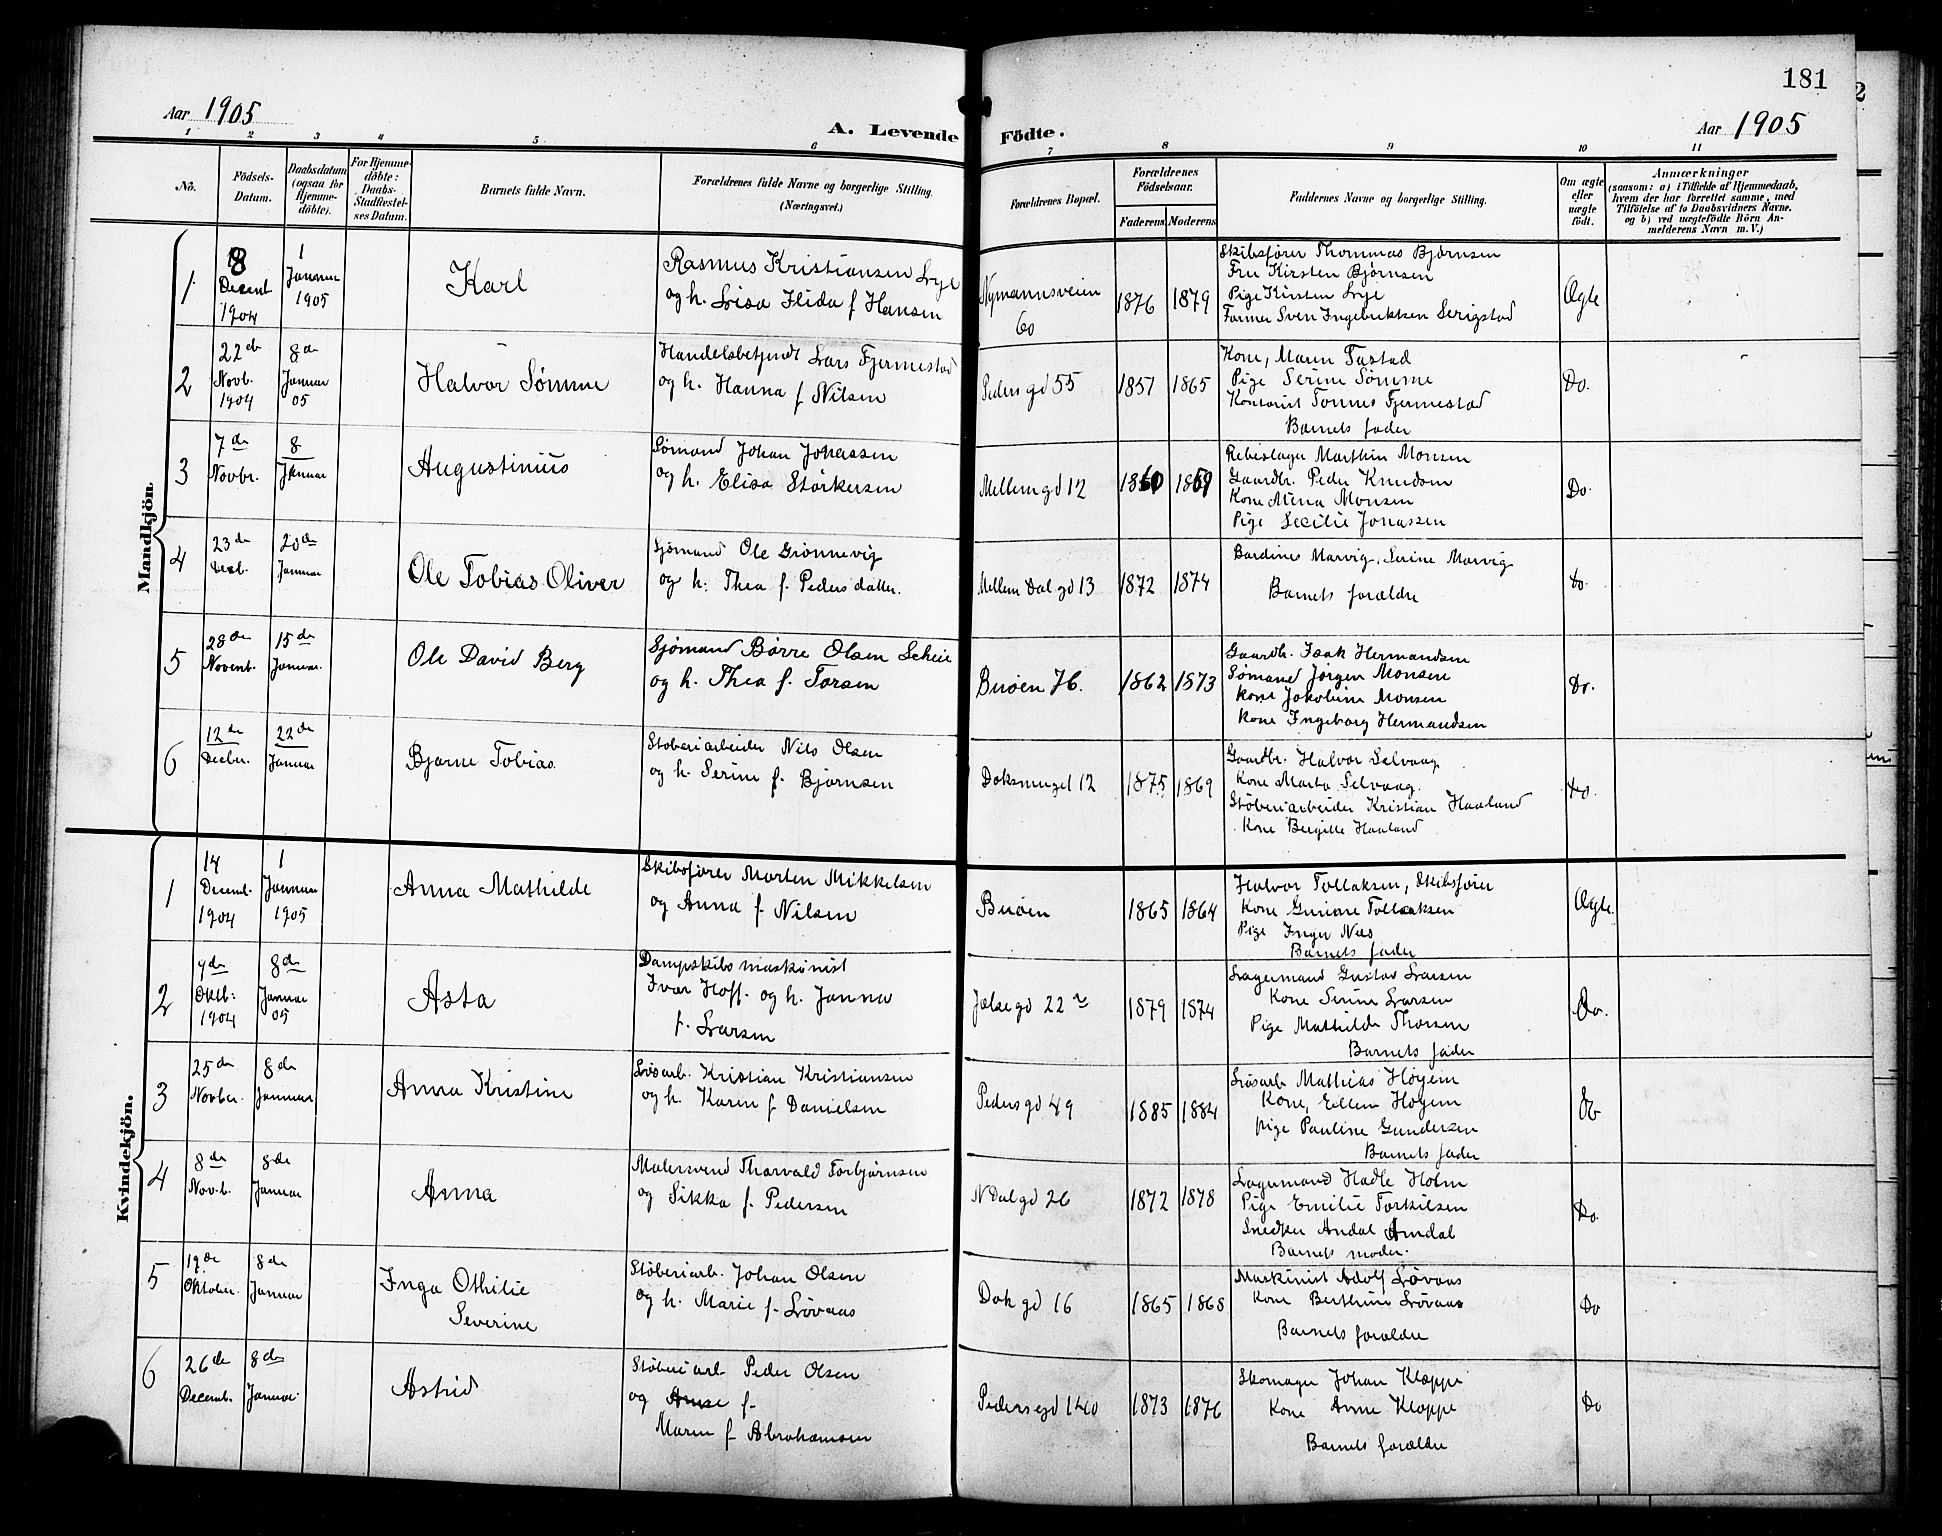 181
Aar 1905
A. Levende Födte.
Aar 1905
1 2 3 4 5 6 7 8 9 10 11
No.
Födsels-Datum.
Daabsdatum (ogsaa for Hjemme-döbte).
For Hjemme-döbte: Daabs-Stadfæstel-ses Datum.
Barnets fulde Navn.
Forældrenes fulde Navne og borgerlige Stilling. (Næringsvei.)
Forældrenes Bopæl.
Forældrenes Födselsaar.
Faderens Moderens
Faddernes Navne og borgerlige Stilling.
Om ægte eller uægte födt.
Anmærkninger
(saasom: a) i Tilfælde af Hjemmedaab,
hvem der har forrettet samme, med
Tilföielse af to Daabsvidners Navne.
og b) ved uægtefödte Börn An-
melderens Navn m. V.)
Mandkjön
1
8 Decent 1904
1 Januar 1905
Karl
Rasmus Kristiansen Lye
og h. Lisa Hida f Hansen
Nymannsveien 60
1876 1879
Skibsfører Thommas Bjørnsen
Fru Kirsten Bjørnsen
Pige Kirsten Lye
Farmer Sven Ingebriktsen Serigstad
Ægte
2
22de Novb. 1904
8de Januar 05
Halvor Sømme
Handelsbetjendt Lars Fjermestad
og h. Hanna f Nilsen
Pedersgd 55
1857 1865
Kone, Maren Tastad
Pige Serine Sømme
Kontorist Tønnes Fjermestad
Barnets fader
Do.
3
7de Novbr.
8 Januar
Augustinius
Sømand Johan Johassen
og h. Elisa Størkersen
Mellemgd 12
1860 1869
Rebeslager Marthin Monsen
Gaardbr. Peder Knudsen
Kone Mina Monsen
Pige Secilie Jonassen
Do
4
23de Decb.
20de Januar
Ole Tobias Oliver
Sjømand Ole Grønnevig
og h. Thea f. Pedersdatter.
Mellem Dalgd 13
1872 1874
Bardines Marvig, Serine Marvig
Barnets forældre
Do.
5
28de Novent.
15de Januar.
Ole David Berg
Sjømand Børre Olsen Scheie
og h. Thea f. Torsen
Buøen H.
1862 1873
Gaardbr. Isak Hermandsen
Sømand Jørgen Monsen
Kone Jakobine Monsen
Kone Ingeborg Hermandsen
Do.
6
12de Decbr.
22de Januar
Bjarne Tobias
Støberiarbeider Nils Olsen
og h. Serine f. Bjørnsen
Doksmuget 12
1875 1869
Gaardbr. Halvor Selvaag
Kone Marta Selvaag.
Støberiarbeider Kristian Haaland
Kone Bergitte Haaland
Do.
Kvindekjön.
1
14 Decemb. 1904
1 Januar 1905
Anna Mathilde
Skibsfører Morten Mikkelsen
og Anna f. Nilsen
Buøen
1865 1864
Halvor Tollaksen, Skibsfører
Kone Gurine Tollaksen
Pige Inger Næs
Barnets fader
Ægte.
2
9de Oktb: 1904
8de Januar 05
Asta
Dampskibsmaskinist
Ivar Hoff. og h. Janna
f. Larsen
Jelsegd 22
1879 1874
Lagermand Gustav Larsen
Kone Serine Larsen
Pige Mathilde Thorsen
Barnets fader
Do.
3
25de Novber.
8de Januar
Anna Kristine
Løsarb. Kristian Kristiansen
og h. Karen f Danielsen
Pedersgd 49
1885 1884
Løsarb Mathias Høyem
Kone, Ellen Høyem
Pige Pauline Gundersen
Barnets fader
Do
4
8de Novb.
8de Januar
Anna
Malersvend Thorvald Torbjørnsen
og Sikka f. Pedersen
N Dalgd 26
1872 1878
Lagermand Hadle Holm
Pige Emilie Torkilsen
Snedker Andal Arndal
Barnets moder.
Do.
5
19de Oktober.
8de Januar
Inga Othilie
Severine
Støberiarb. Johan Olsen
og h. Marie f. Løvaas
Dokgd 16
1865 1868
Maskinist Adolf Løvaas
Kone Berthine Løvaas
Barnets forældre
Do
6
26de Decemb.
8de Januar
Astrid
Støberiarb Peder Olsen
og Anne f-
Maren f. Abrahamsen
Pedersgd 140
1873 1876
Skomager Johan Kloppe
Kone Anne Kloppe
Barnets forældre
Do